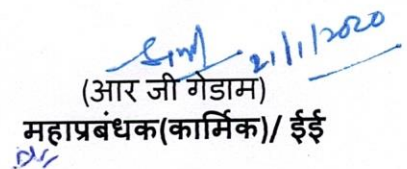 21/1/2020
(आर जी गेडाम)
महाप्रबंधक(कार्मिक)/ ईई